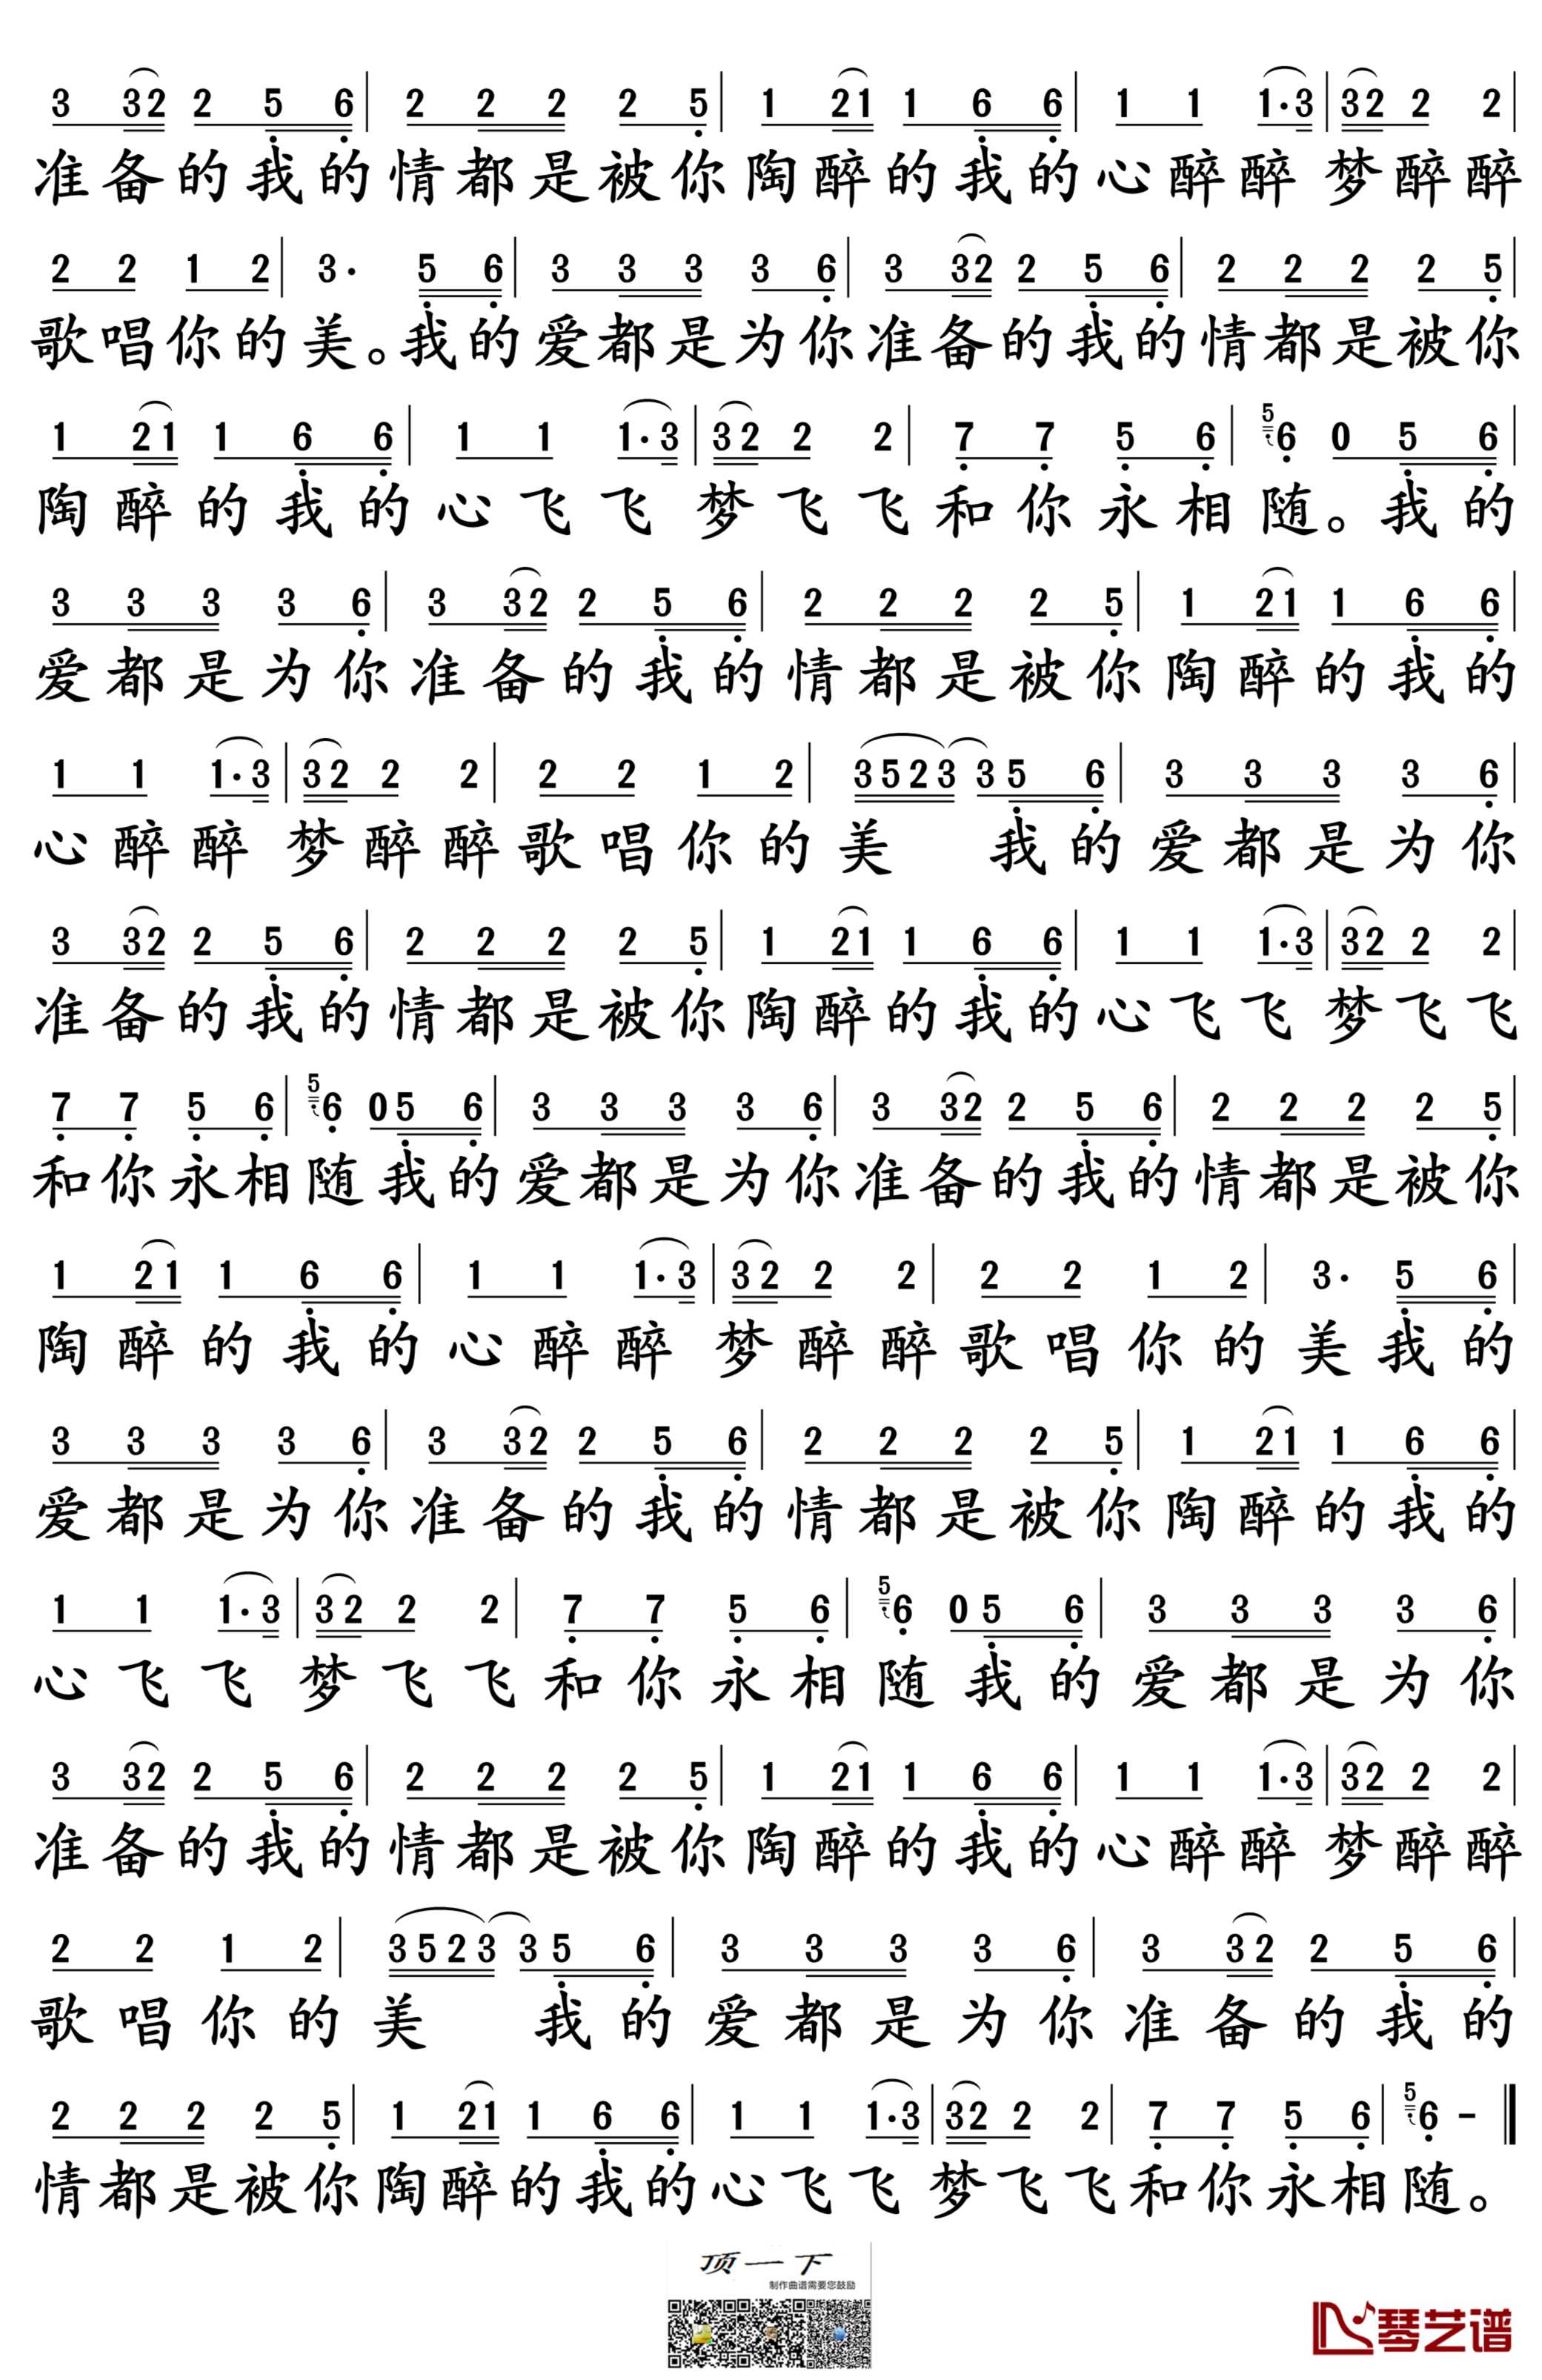 3 32 2 5 6 | 2 2 2 2 5 | 1 21 1 6 6 | 1 1 1·3 | 32 2 2 |
准备的我的情都是被你陶醉的我的心醉醉 梦醉醉
2 2 1 2 | 3· 5 6 | 3 3 3 3 6 | 3 32 2 5 6 | 2 2 2 2 5 |
歌唱你的美。我的爱都是为你准备的我的情都是被你
1 21 1 6 6 | 1 1 1·3 | 32 2 2 | 7 7 5 6 | 5 6 0 5 6 |
陶醉的我的心飞飞 梦飞飞和你永相随。我的
3 3 3 3 6 | 3 32 2 5 6 | 2 2 2 2 5 | 1 21 1 6 6 |
爱都是为你准备的我的情都是被你陶醉的我的
1 1 1·3 | 32 2 2 | 2 2 1 2 | 3523 3 5 6 | 3 3 3 3 6 |
心醉醉 梦醉醉歌唱你的美 我的爱都是为你
3 32 2 5 6 | 2 2 2 2 5 | 1 21 1 6 6 | 1 1 1·3 | 32 2 2 |
准备的我的情都是被你陶醉的我的心飞飞 梦飞飞
7 7 5 6 | 5 6 0 5 6 | 3 3 3 3 6 | 3 32 2 5 6 | 2 2 2 2 5 |
和你永相随我的爱都是为你准备的我的情都是被你
1 21 1 6 6 | 1 1 1·3 | 32 2 2 | 2 2 1 2 | 3· 5 6 |
陶醉的我的心醉醉 梦醉醉歌唱你的美我的
3 3 3 3 6 | 3 32 2 5 6 | 2 2 2 2 5 | 1 21 1 6 6 |
爱都是为你准备的我的情都是被你陶醉的我的
1 1 1·3 | 32 2 2 | 7 7 5 6 | 5 6 0 5 6 | 3 3 3 3 6 |
心飞飞 梦飞飞和你永相随我的爱都是为你
3 32 2 5 6 | 2 2 2 2 5 | 1 21 1 6 6 | 1 1 1·3 | 32 2 2 |
准备的我的情都是被你陶醉的我的心醉醉 梦醉醉
2 2 1 2 | 3523 3 5 6 | 3 3 3 3 6 | 3 32 2 5 6 |
歌唱你的美 我的爱都是为你准备的我的
2 2 2 2 5 | 1 21 1 6 6 | 1 1 1·3 | 32 2 2 | 7 7 5 6 | 5 6 -
情都是被你陶醉的我的心飞飞 梦飞飞和你永相随。
顶一下
制作曲谱需要您鼓励
琴艺谱